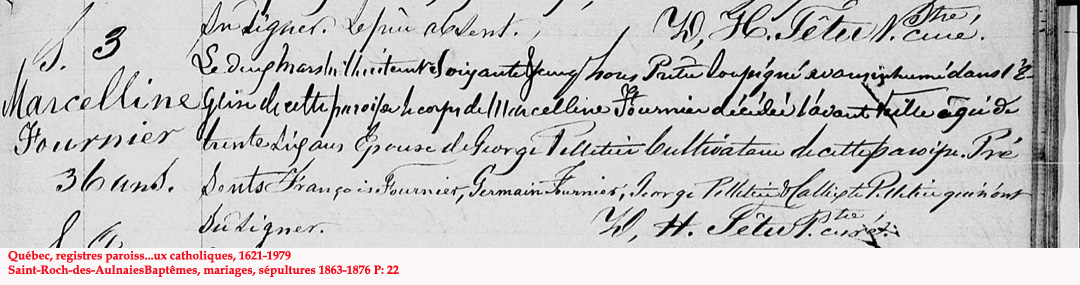 su signer. Le père absent. D, H. Têtu Ptre, curé.
S. 3
Marcelline
Fournier
36 ans.
Le cinq Mars mil huit cent soixante & cinq Nous Prêtre Soussigné avons inhumé dans l'É
glise de cette paroisse le corps de Marcelline Fournier décédée l'avant veille agée de
trente six ans Epouse de George Pelletier Cultivateur de cette paroisse. Pré
sents François Fournier, Germain Fournier, George Pelletier & Calixte Pelletier qui n'ont
su signer. D, H. Têtu Ptre curé.
S.
Québec, registres paroiss...ux catholiques, 1621-1979
Saint-Roch-des-AulnaiesBaptêmes, mariages, sépultures 1863-1876 P: 22